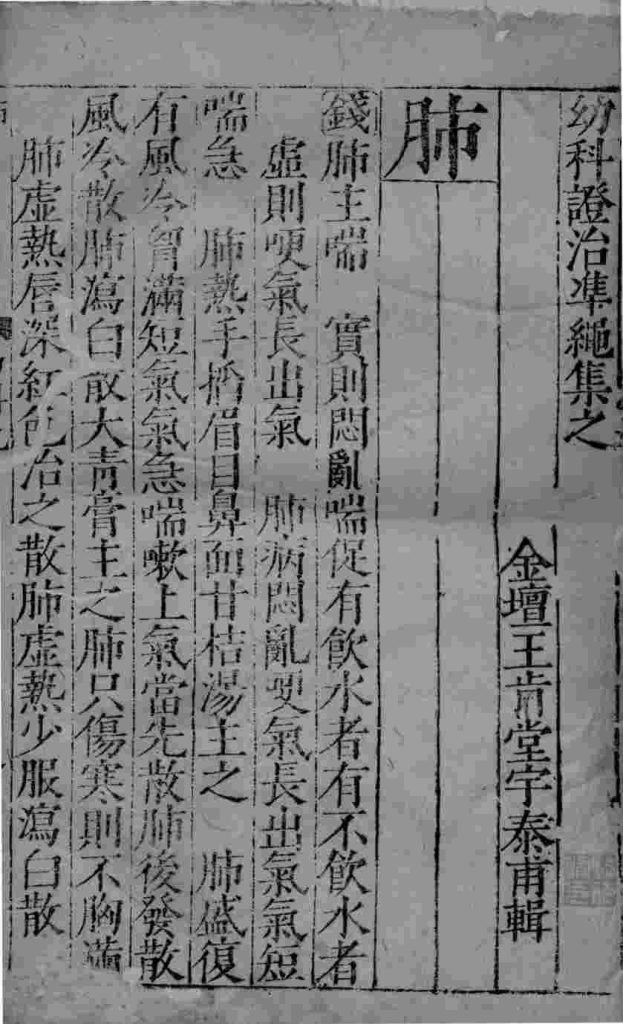 幼科證治準繩集之
金壇王肯堂宇泰甫輯
肺
錢肺主喘　實則悶亂喘促有飲水者有不飲水者
虛則哽氣長出氣　肺病悶亂哽氣長出氣氣短
喘急　肺熱手搯眉目鼻面甘桔湯主之　肺盛復
有風冷胷滿短氣氣急喘嗽上氣當先散肺後發散
風冷散肺瀉白散大青膏主之肺只傷寒則不胸滿
肺虛熱唇深紅色治之散肺虛熱少服瀉白散